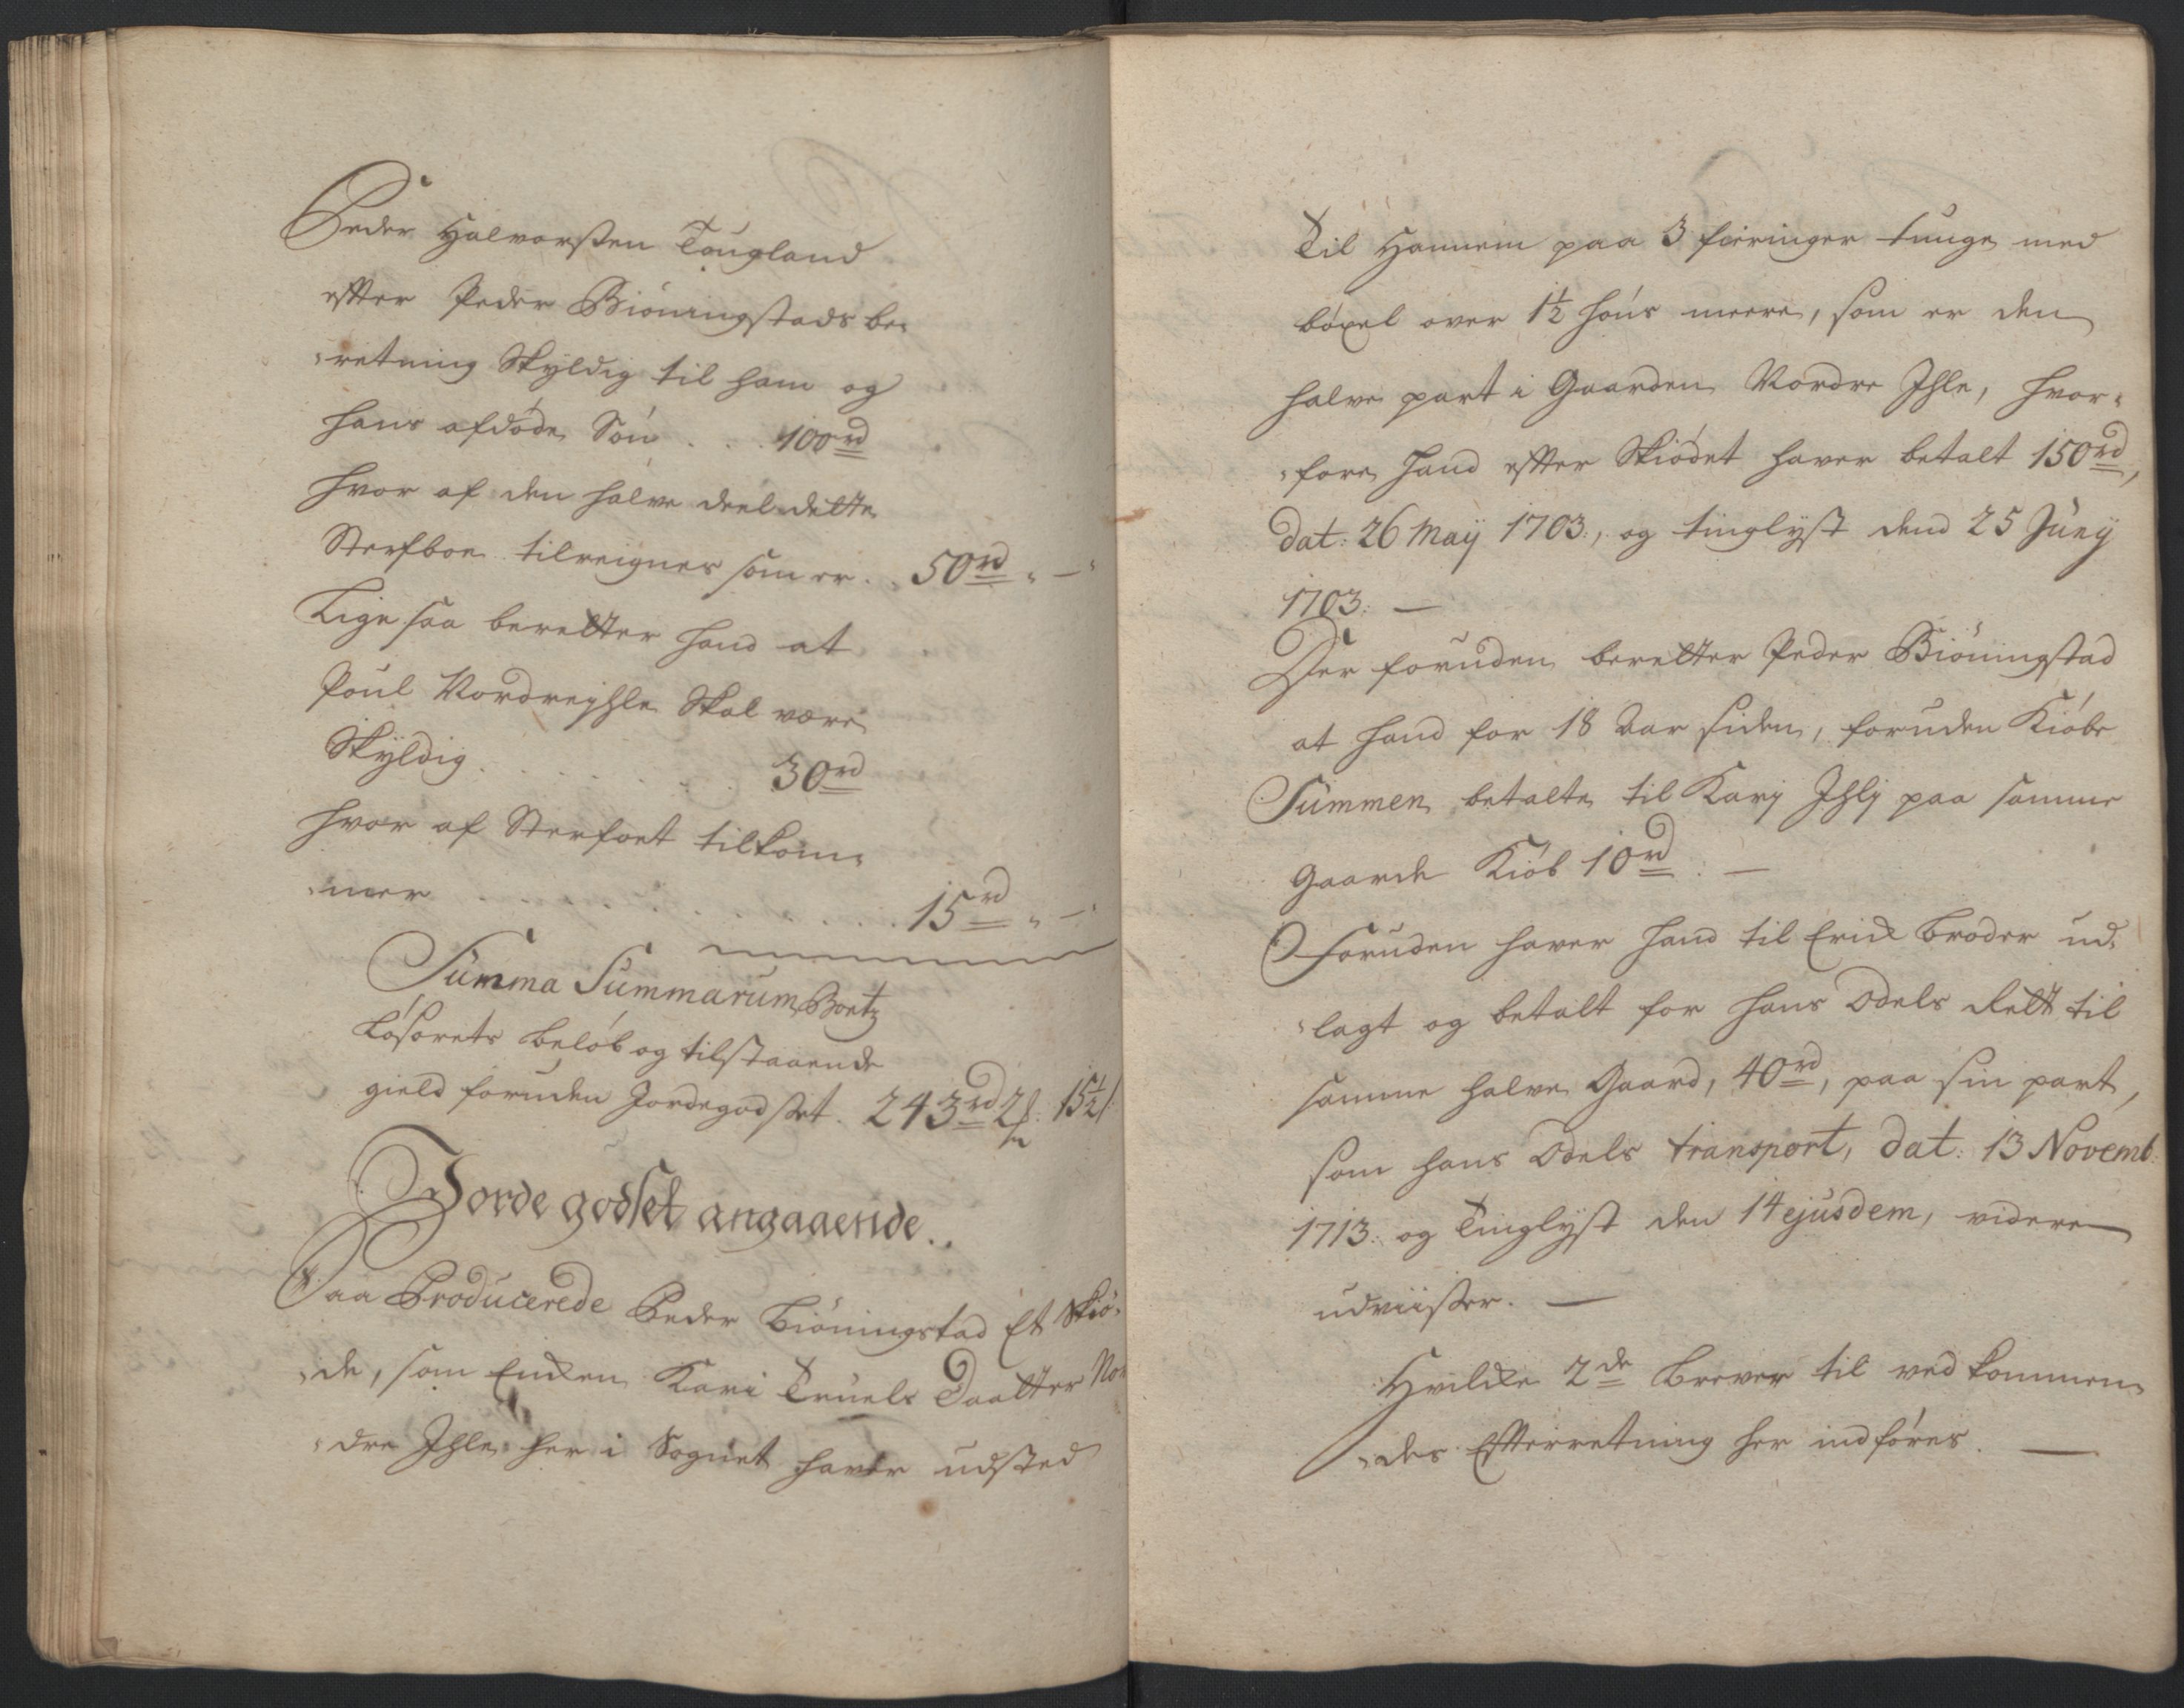 Peder Halvorßen Tougland
efter Peder Biöningstads be„
„retning Skyldig til ham og
hans afdöde Sön . . . 100 rd
hvor af den halve deel dette
Sterfboe tilreigner som er . . 50 rd „ — „
Lige saa beretter hand at
Poul Nordre jhle Skal være
Skyldig . . . . . . 30 rd
hvor af Sterfboet tilkom„
„mer . . . . . . . . . . . 15 rd „ — „
Summa Summarum Boetz
Lösörets beløb og tilstaaende
gield foruden Jordegodset . 243 rd 2 15½
Jorde godset angaaende..
Saa Producerede Peder Biöningstad Et Skiö„
„de, som Enken Kari Truels Daatter Nor
„dre Jhle her i Sognet haver udsted
Til Hannem paa 3 fieringer tunge med
böxel over 1½ hóus meere, som er den
halve part i Gaarden Nordre Jhle, hvor„
„fore hand efter Skiödet haver betalt 150 rd,
dat: 26 Maij 1703:, og tinglyst dend 25 Junij
1703: —
Der foruden beretter Peder Biöningstad
at hand for 18 Aar siden, foruden Kiöbe
Summen betalte til Karj Jhlj paa samme
Gaarde Kiöb 10 rd : —
Foruden haver hand til Erick broder ud„
„lagt og betalt for hans Odels Rett til
samme halve Gaard, 40 rd, paa sin part,
som hans Odels transport, dat: 13 Novemb:
1713: og Tinglyst den 14 ejusdem, videre
udviißer. —
Hvilcke 2de brever til vedkommen„
„des Efterretning her indföres. —